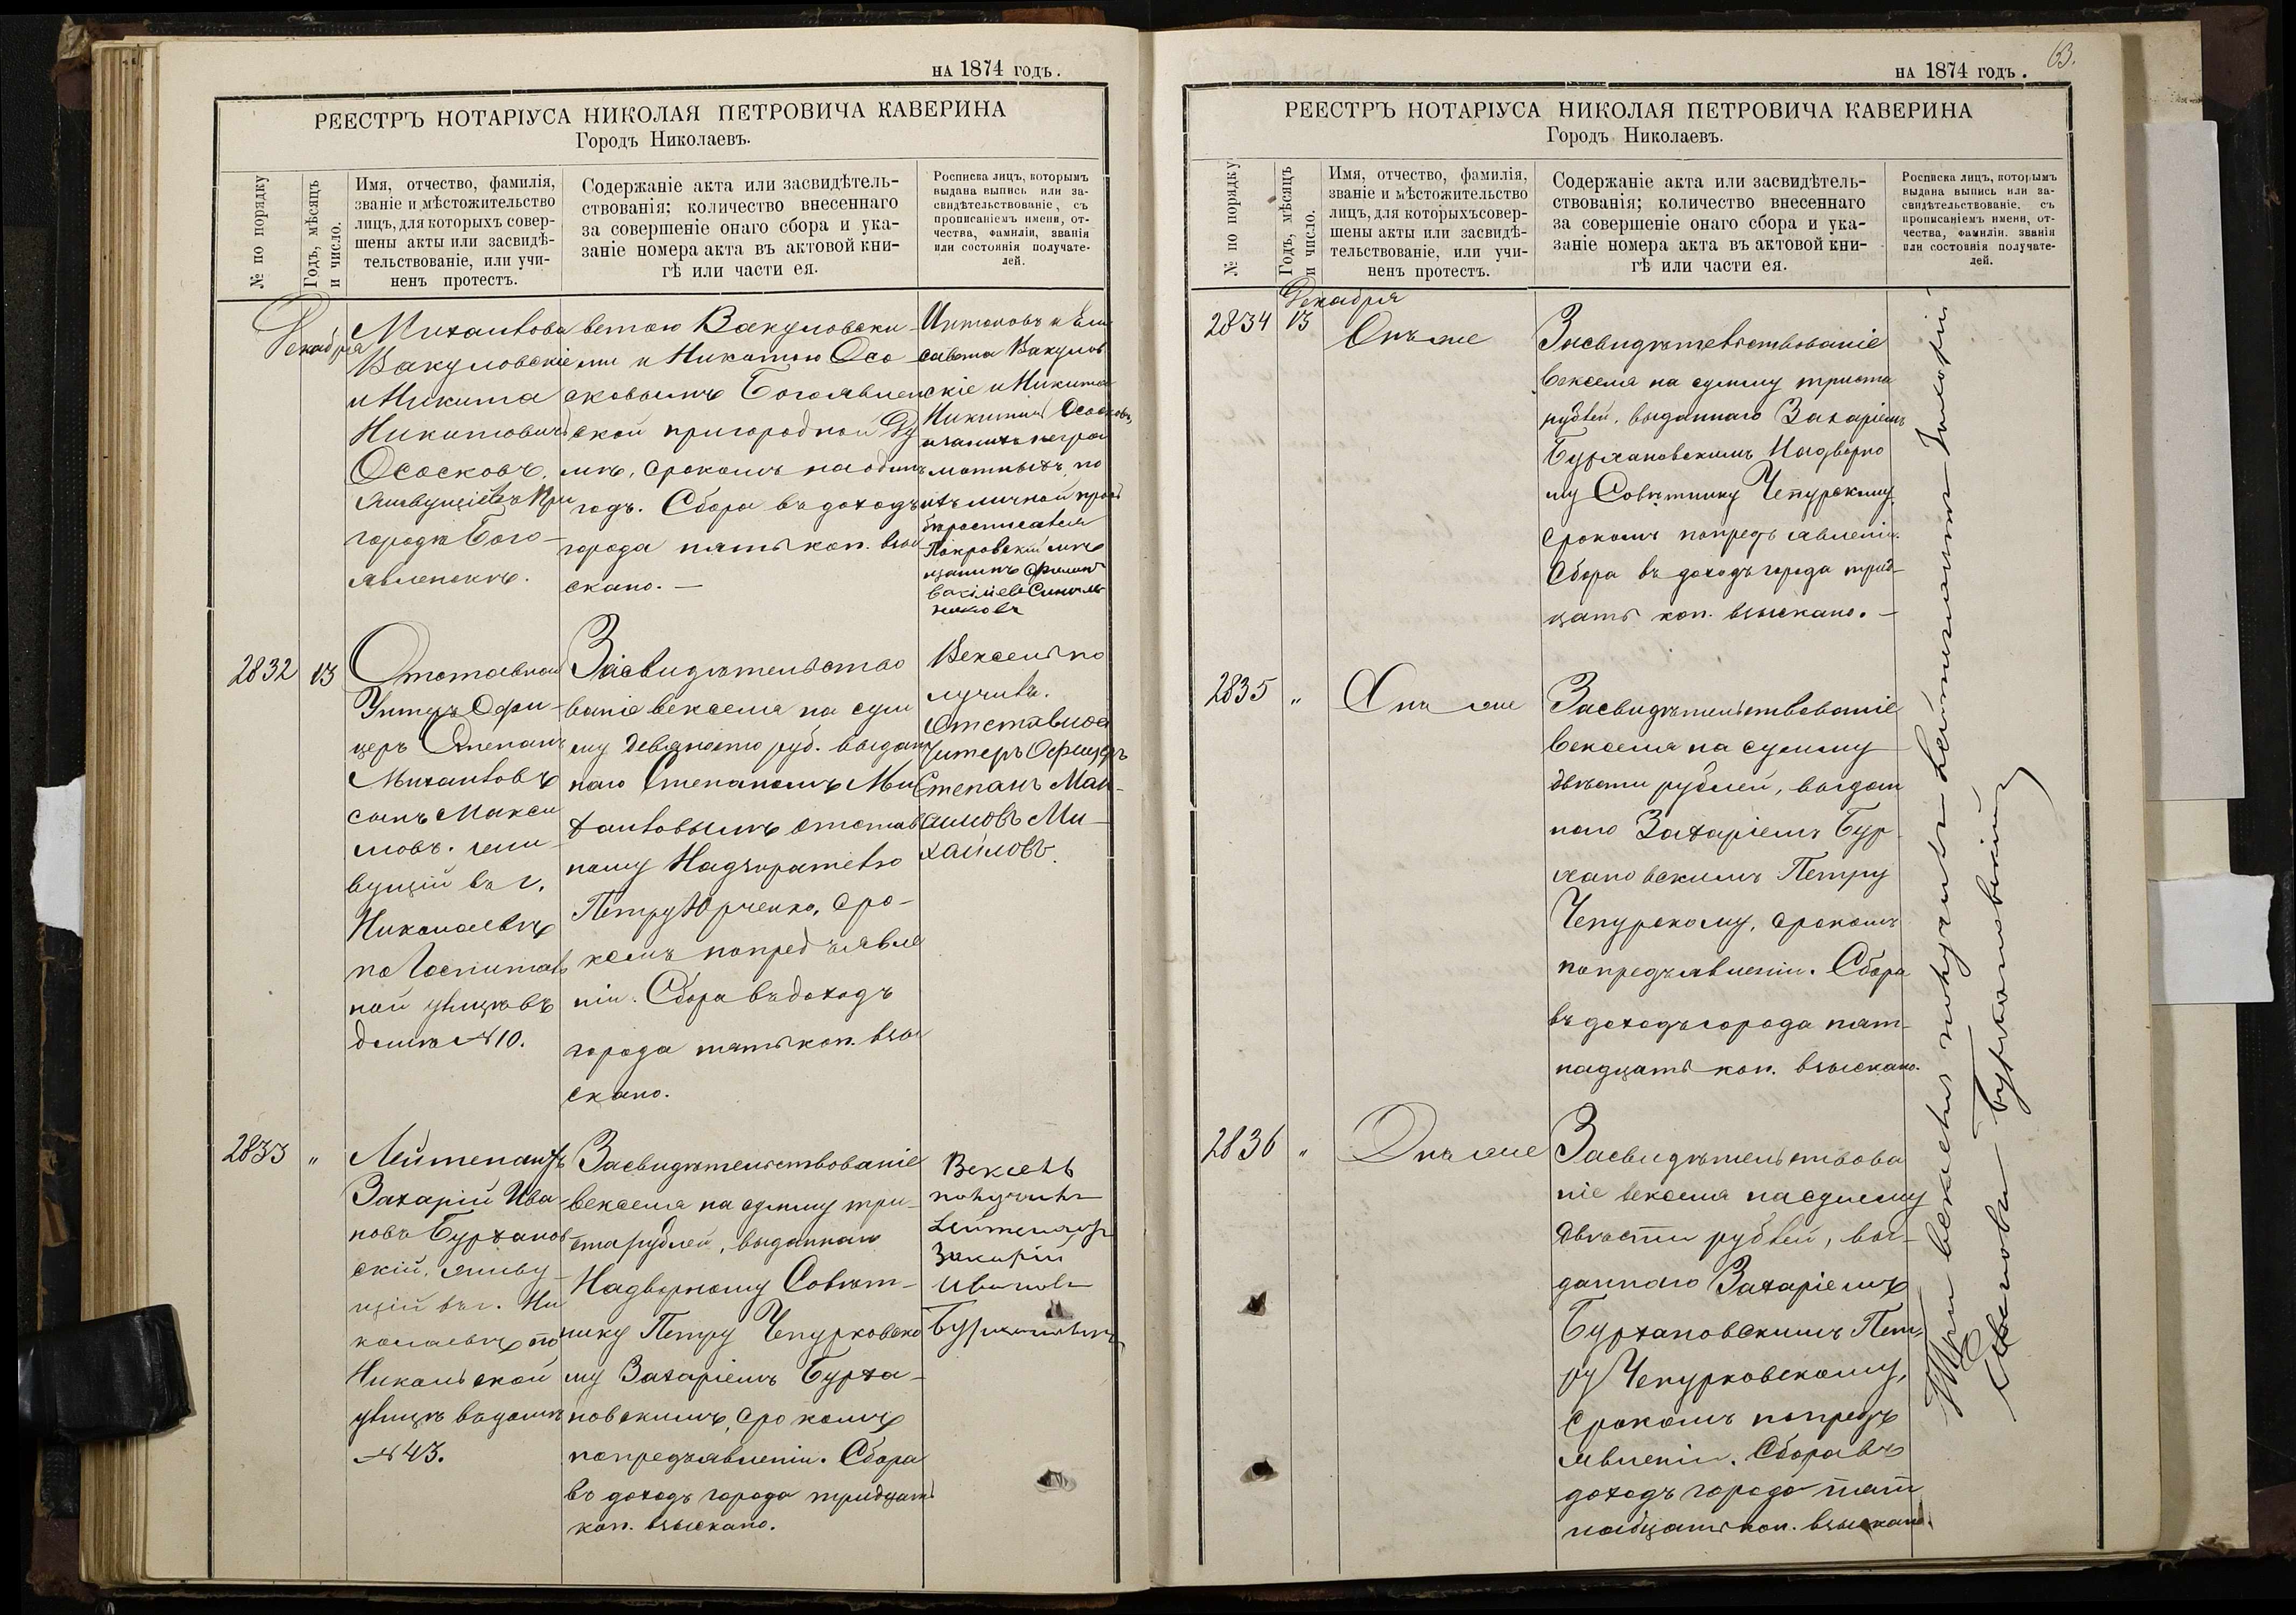 НА 1874 ГОДЪ.
РЕЕСТРЪ НОТАРІУСА НИКОЛАЯ ПЕТРОВИЧА КАВЕРИНА
Городъ Николаевъ.
№ по порядку
Годъ, мѣсяцъ
и число.
Имя, отчество, фамилія,
званіе и мѣстожительство
лицъ, для которыхъ совер-
шены акты или засвидѣ-
тельствованіе, или учи-
ненъ протестъ.
Содержаніе акта или засвидѣтель-
ствованія; количество внесеннаго
за совершеніе онаго сбора и ука-
заніе номера акта въ актовой кни-
гѣ или части ея.
Росписка лицъ, которымъ
выдана выпись или за-
свидѣтельствованіе, съ
прописаніемъ имени, от-
чества, фамиліи, званія
или состоянія получате-
лей.
Декабря
Михайлова
Вакуловскіе
и Никита
Никитовичъ
Ососковъ,
живущіе въ При
городѣ Бого-
явленскѣ.
ветою Вакуловски-
ми и Никитою Осо
сковымъ Богоявлен
ской пригородной Ду
мѣ, срокомъ на одинъ
годъ. Сбора въ доходъ
города пять коп. взы
скано. —
Антоновъ и Ели
савета Вакулов
скіе и Никита
Никитинъ Ососковъ,
а за нихъ неграм
мотныхъ, по
ихъ личной прось
бѣ росписался
Покровскій мѣ
щанинъ
Синель
никовъ
2832
13
Отставной
Унтеръ Офи-
церъ Степанъ
Михайловъ
сынъ Макси
мовъ. жи-
вущій въ г.
Николаевѣ
по Госпиталь
ной улицѣ въ
домѣ № 10.
Засвидѣтельство
ваніе векселя на сум
му девяносто руб. выдан
наго Степаномъ Ми
хайловымъ отстав
ному Надзирателю
Петру Юрченко, сро-
комъ по предъявле
ніи. Сбора въ доходъ
города пять коп. взы
скано.
Вексель по
лучилъ.
Отставной
Унтеръ Офицеръ
Степанъ Мак-
симовъ Ми-
хайловъ.
2833
"
Лейтенантъ
Захарій Ива-
новъ Бурханов
скій, живу-
щій въ г. Ни
колаевѣ по
Никольской
улицѣ въ домѣ
№ 43.
Засвидѣтельствованіе
векселя на сумму три-
ста рублей, выданнаго
Надворному Совѣт-
нику Петру Чепурковско
му Захаріемъ Бурха-
новскимъ, срокомъ
по предъявленіи. Сбора
въ доходъ города тридцать
коп. взыскано.
Вексель
получилъ
Лейтенантъ
Захарій
Ивановъ
Бурхановскій
63.
НА 1874 ГОДЪ.
РЕЕСТРЪ НОТАРІУСА НИКОЛАЯ ПЕТРОВИЧА КАВЕРИНА
Городъ Николаевъ.
№ по порядку
Годъ, мѣсяцъ
и число.
Имя, отчество, фамилія,
званіе и мѣстожительство
лицъ, для которыхъ совер-
шены акты или засвидѣ-
тельствованіе, или учи-
ненъ протестъ.
Содержаніе акта или засвидѣтель-
ствованія; количество внесеннаго
за совершеніе онаго сбора и ука-
заніе номера акта въ актовой кни-
гѣ или части ея.
Росписка лицъ, которымъ
выдана выпись или за-
свидѣтельствованіе, съ
прописаніемъ имени, от-
чества, фамиліи, званія
или состоянія получате-
лей.
Декабря
2834
13
Онъ же
Засвидѣтельствованіе
векселя на сумму триста
рублей, выданнаго Захаріемъ
Бурхановскимъ Надворно
му Совѣтнику Чепурскому,
срокомъ по предъявленіи.
Сбора въ доходъ города трид-
цать коп. взыскано. —
2835
"
Онъ же
Засвидѣтельствованіе
векселя на сумму
двѣсти рублей, выдан
наго Захаріемъ Бур-
хановскимъ Петру
Чепурскому, срокомъ
по предъявленіи. Сбора
въ доходъ города пят-
надцать коп. взыскано.
2836
"
Онъ же
Засвидѣтельствова
ніе векселя на сумму
двѣсти рублей, вы-
даннаго Захаріемъ
Бурхановскимъ Пет-
ру Чепурковскому,
срокомъ по предъ
явленіи. Сбора въ
доходъ города пят
надцать коп. взыскано.
Три векселя получилъ Лейтенантъ Захарій
Ивановъ Бурхановскій